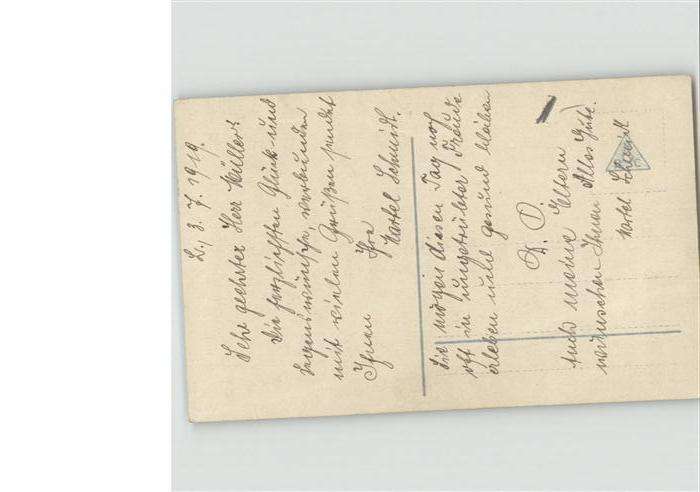 L., 3. 7. 1919.
Sehr geehrter Herr Müller!
Die herzlichsten Glück- und
Segenswünsche, verbunden
mit vielen Grüßen sendet
Ihnen Ihre
Schmidt.
Sie mögen diesen Tag noch
oft in ungetrübter Freude
erleben und gesund bleiben
D. O.
Auch meine Eltern
wünschen Ihnen Alles Gute.